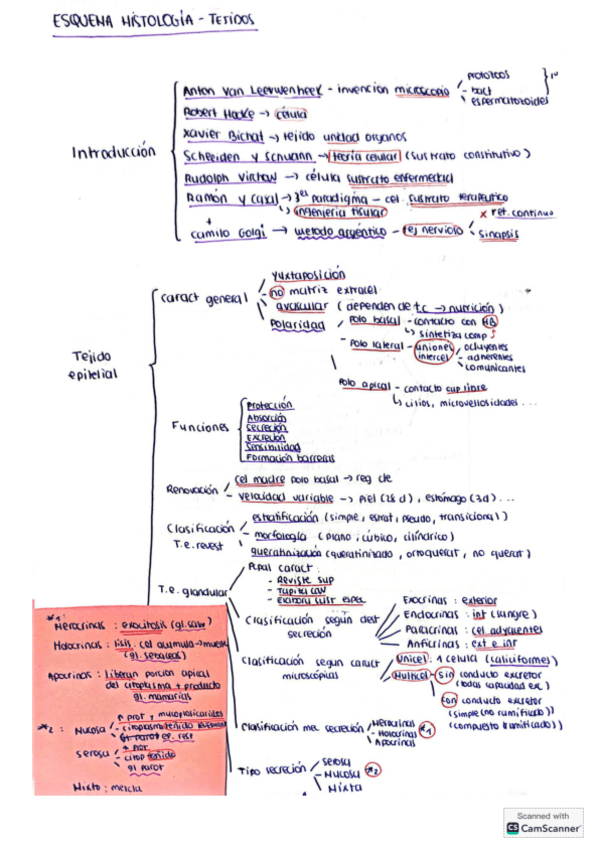 ESQUEMA HISTOLOGÍA - TEJIDOS
Introducción
Anton Van Leeuwenheek - invención microscopio
protozoos
bact
espermatozoides
Robert Hooke → célula
Xavier Bichat → tejido unidad órganos
Scheiden y Schwann → teoría celular (sustrato constitutivo)
Rudolph Virchow → célula sustrato enfermedad
Ramón y Cajal → 3er paradigma - cel. sustrato terapeutico
↳ ingeniería tisular
+
Camilo Golgi → metodo argéntico - tej nervioso
x ret. continuo
sinapsis
Tejido epitelial
caract general
Yuxtaposición
no matriz extracel
avascular (dependen de t.c → nutrición)
Polaridad
Polo basal - contacto con MB
↳ sintetiza comp
Polo lateral - uniones intercel
ocluyentes
adherentes
comunicantes
Polo apical - contacto sup libre
↳ cilios, microvellosidades ...
Funciones
Protección
Absorción
Secreción
Excreción
Sensibilidad
Formación barreras
Renovación
cel madre polo basal → reg de
velocidad variable → piel (28 d), estómago (3d) ...
Clasificación T.e. revest
estratificación (simple, estrat, pseudo, transicional)
morfología (plano, cúbico, cilíndrico)
queratinización (queratinizado, ortoquerat, no querat)
T.e. glandular
Ppal caract:
- Reviste sup
- Tapiza cav
- Elabora sust espec
Clasificación según dest secreción
Exocrinas : exterior
Endocrinas : int (sangre)
Paracrinas : cel adyacentes
Anficrinas : ext e int
Clasificación segun caract microscópias
Unicel: 1 célula (caliciformes)
Multicel - sin conducto excretor
(todas capacidad ex.)
con conducto excretor
(simple (no ramificado))
(compuesto (ramificado))
Clasificación mec secreción
Merocrinas
Holocrinas
Apocrinas
*1
Tipo secreción
Serosa
Mucosa
Mixta
*2
*1:
Merocrinas : exocitosis (gl. saliv)
Holocrinas : lisis. cel acumula → muere
(gl. sebáceas)
Apocrinas : liberan porcion apical
del citoplasma + producto
gl. mamarias
*2 : Mucosa
↑ prot y mucopolisacáridos
serosa
↑ prot
citop teñido
gl parot
Mixto : mezcla
Scanned with
CS CamScanner